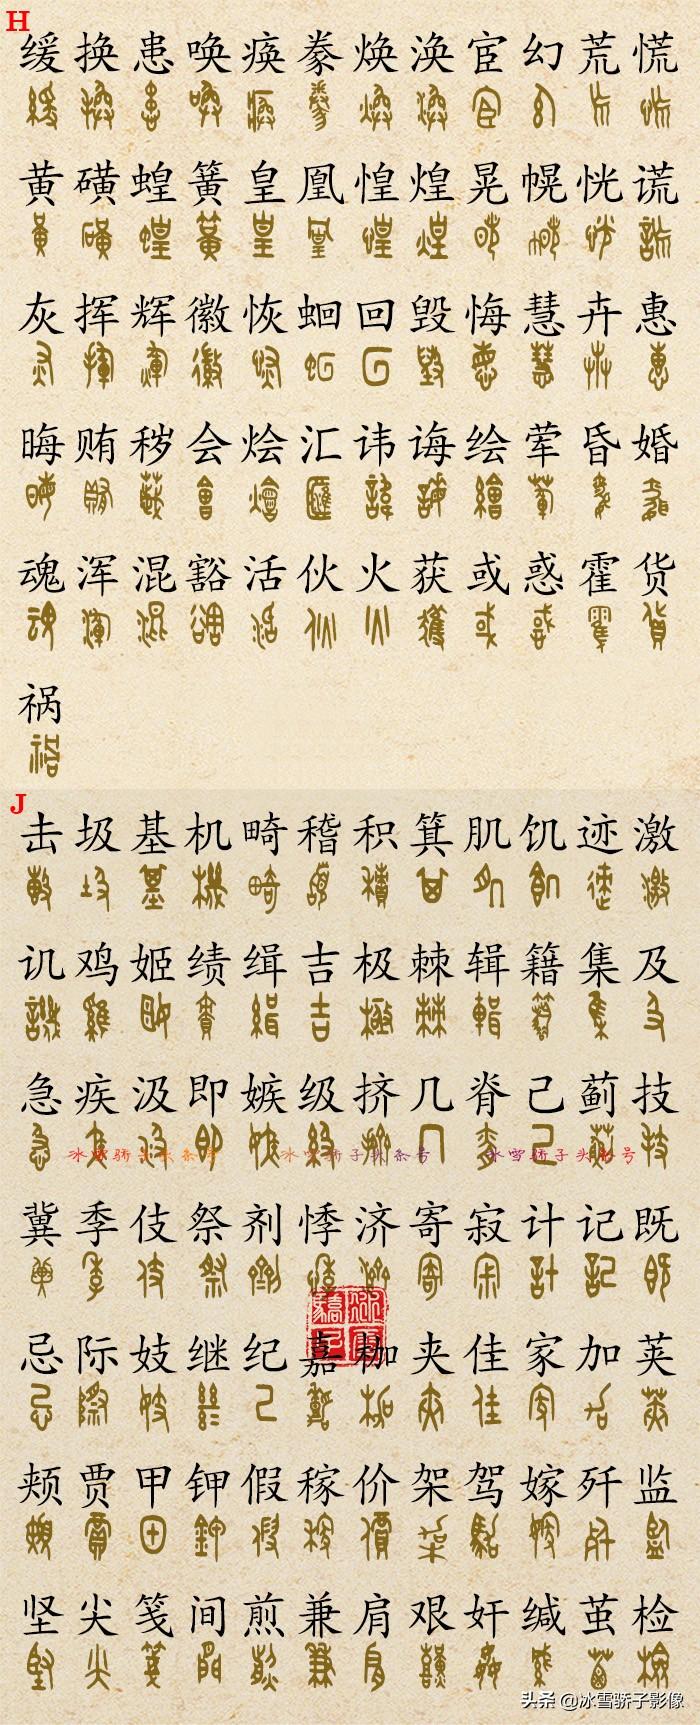 H
缓换患唤痪豢焕涣宦幻荒慌
黄磺蝗簧皇凰惶煌晃幌恍谎
灰挥辉徽恢蛔回毁悔慧卉惠
晦贿秽会烩汇讳诲绘荤昏婚
魂浑混豁活伙火获或惑霍货
祸
J
击圾基机畸稽积箕肌饥迹激
讥鸡姬绩缉吉极棘辑籍集及
急疾汲即嫉级挤几脊己蓟技
冀季伎祭剂悸济寄寂计记既
忌际妓继纪嘉枷夹佳家加荚
颊贾甲钾假稼价架驾嫁歼监
坚尖笺间煎兼肩艰奸缄茧检
冰雪骄子头条号 冰雪骄子头条号 冰雪骄子头条号
头条 @冰雪骄子影像